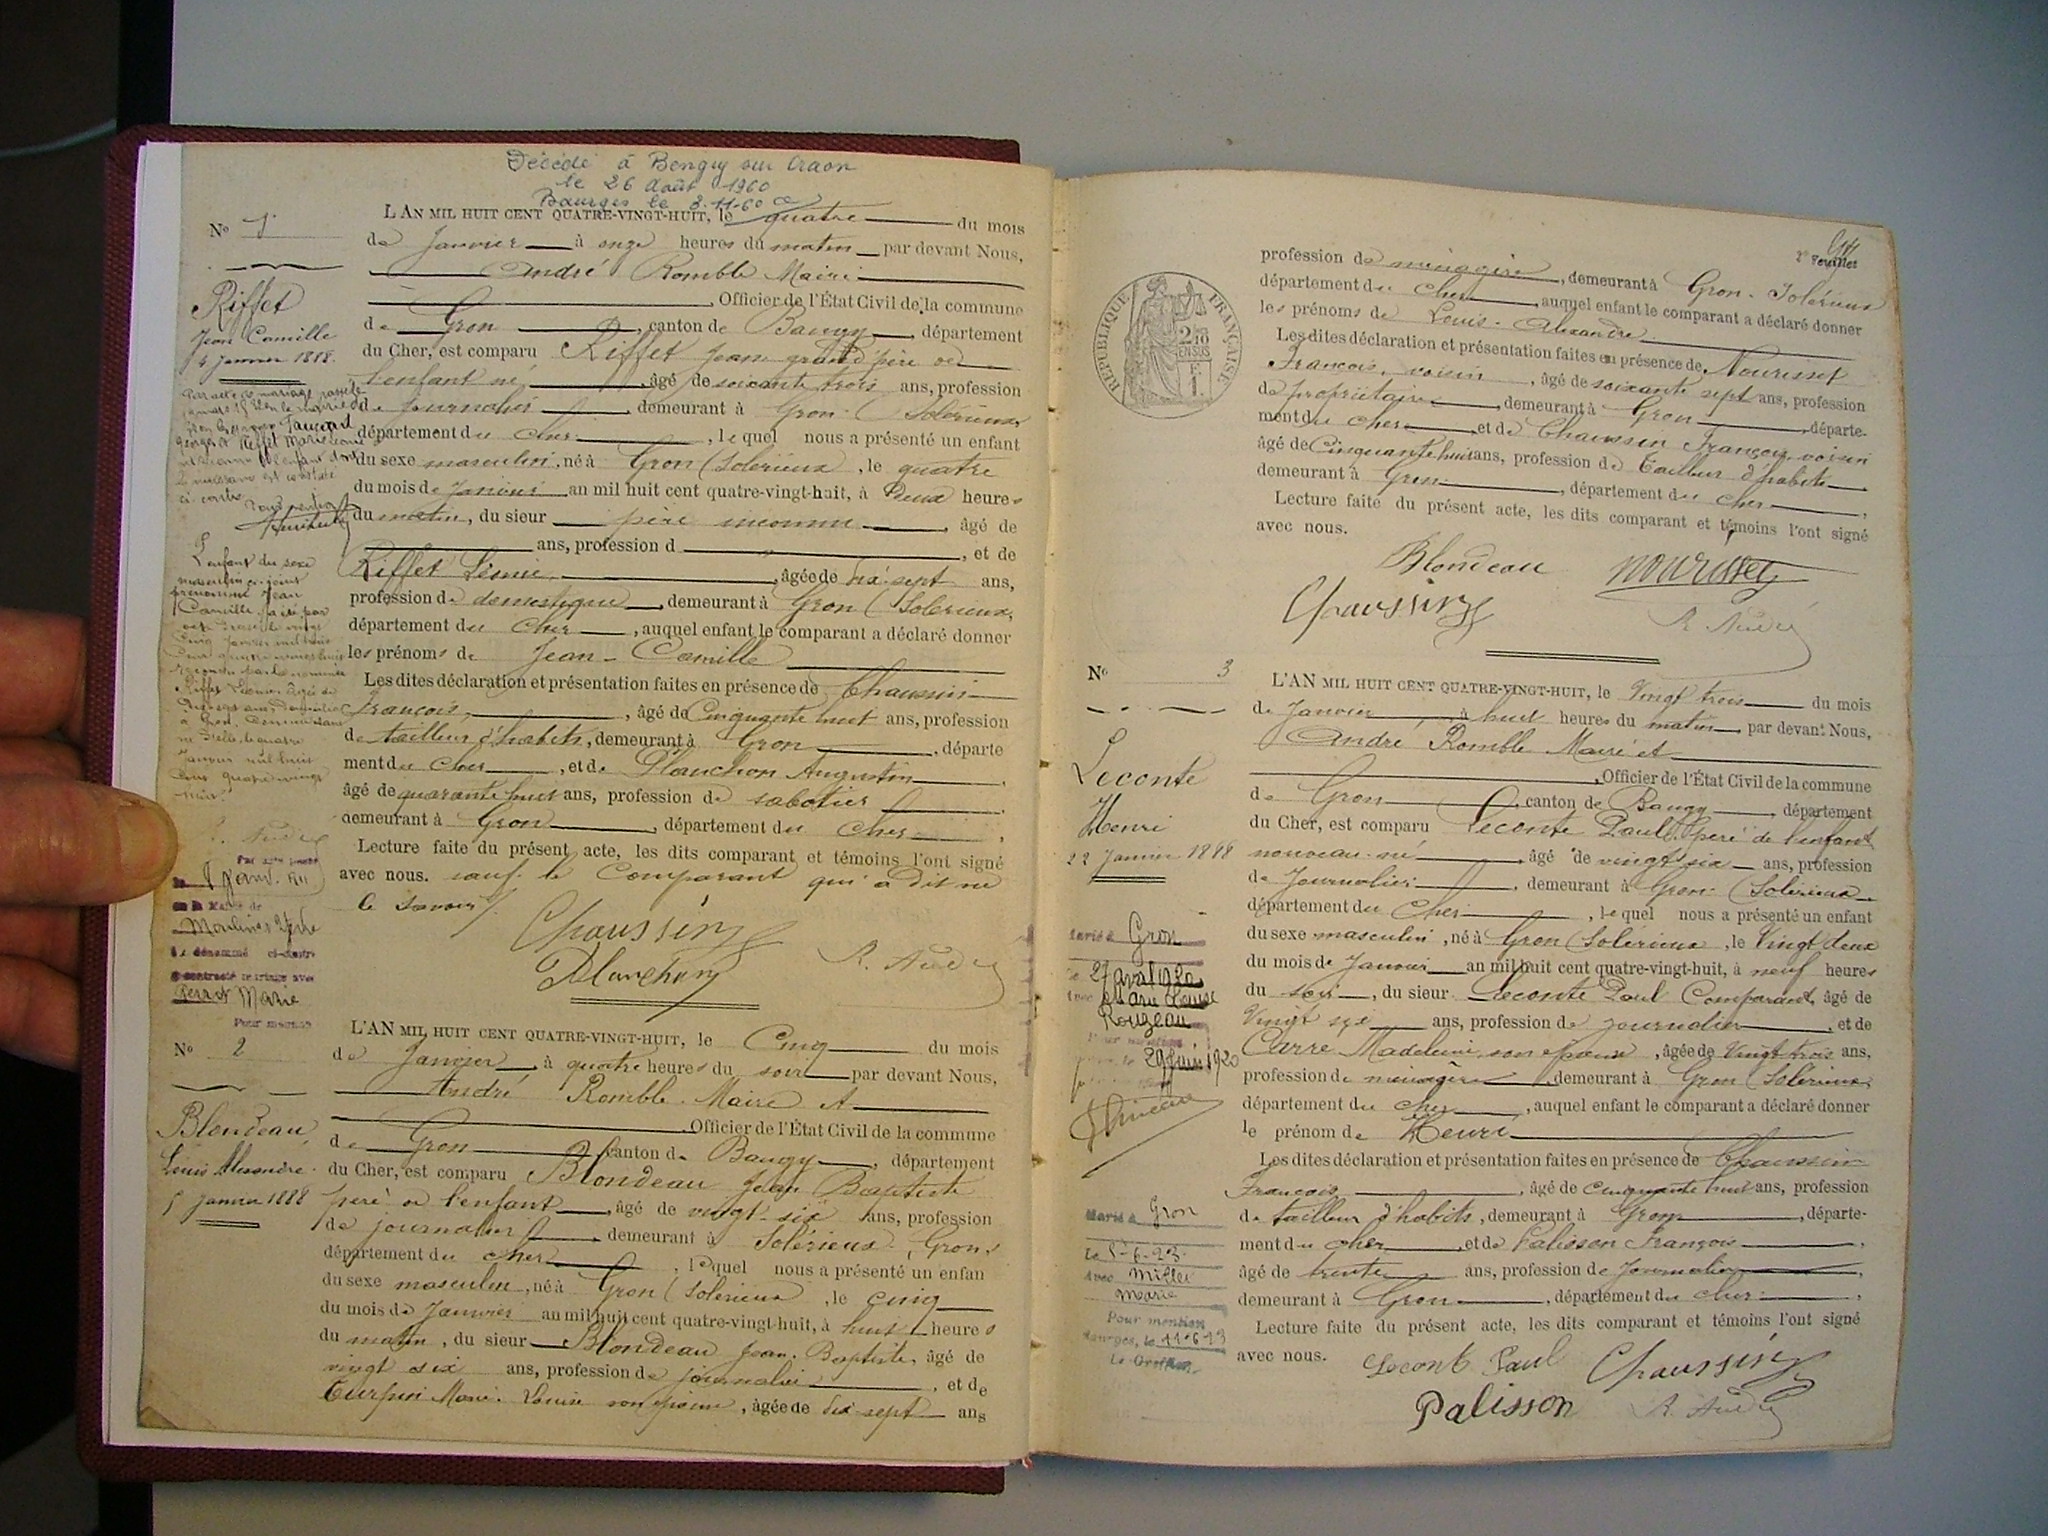 Décédé à Bengy sur Craon
le 26 Août 1960
Bourges le 8-11-60
No 1
L'AN MIL HUIT CENT QUATRE-VINGT-HUIT, le quatre du mois
de Janvier à onze heures du matin par devant Nous,
André Romble Maire
, Officier de l'État Civil de la commune
de Gron, canton de Baugy, département
du Cher, est comparu Riffet Jean grand père de
l'enfant né, âgé de soixante trois ans, profession
de journalier, demeurant à Gron (Solérieux
département du Cher, lequel nous a présenté un enfant
du sexe masculin, né à Gron (Solérieux, le quatre
du mois de Janvier an mil huit cent quatre-vingt-huit, à Deux heures
du matin, du sieur père inconnu, âgé de
ans, profession d, et de
Riffet Léonie, âgée de dix-sept ans,
profession de domestique, demeurant à Gron (Solérieux,
département du Cher, auquel enfant le comparant a déclaré donner
les prénoms de Jean-Camille
Les dites déclaration et présentation faites en présence de Chaussin
François, âgé de Cinquante huit ans, profession
de tailleur d'habits, demeurant à Gron, départe
ment du Cher, et de Planchon Augustin
âgé de quarante huit ans, profession de sabotier
demeurant à Gron, département du Cher,
Lecture faite du présent acte, les dits comparant et témoins l'ont signé
avec nous. sauf le Comparant qui a dit ne
le savoir
Chaussin
Planchon
R. André
Riffet
Jean Camille
4 Janvier 1888.
L'enfant du sexe
masculin ci-joint
prénommé Jean
Camille
Riffet Léonie âgée de
à Gron
Janvier mil huit
cent quatre-vingt
huit.
Moulins s/Yèvre
Le dénommé ci-contre
a contracté mariage avec
Perrot Marie
Pour mention
No 2
L'AN MIL HUIT CENT QUATRE-VINGT-HUIT, le Cinq du mois
de Janvier, à quatre heures du soir par devant Nous,
André Romble Maire et
, Officier de l'État Civil de la commune
de Gron canton de Baugy, département
du Cher, est comparu Blondeau Jean Baptiste
père de l'enfant, âgé de vingt-six ans, profession
de journalier, demeurant à Solérieux (Gron)
département du Cher, lequel nous a présenté un enfan
du sexe masculin, né à Gron (Solérieux, le cinq
du mois de Janvier an mil huit cent quatre-vingt-huit, à huit heures
du matin, du sieur Blondeau Jean-Baptiste, âgé de
vingt six ans, profession de journalier, et de
Turpin Marie-Louise son épouse, âgée de dix-sept ans
Blondeau
Louis Alexandre
5 Janvier 1888
2e Feuillet
RÉPUBLIQUE FRANÇAISE
profession de ménagère, demeurant à Gron-Solérieux
département du Cher, auquel enfant le comparant a déclaré donner
les prénoms de Louis-Alexandre
Les dites déclaration et présentation faites en présence de Nourisset
François, voisin, âgé de soixante sept ans, profession
de propriétaire, demeurant à Gron, départe-
ment du Cher, et de Chaussin François voisin
âgé de Cinquante huit ans, profession de tailleur d'habits
demeurant à Gron, département du Cher,
Lecture faite du présent acte, les dits comparant et témoins l'ont signé
avec nous.
Blondeau Nourisset
Chaussin R. André
No 3
L'AN MIL HUIT CENT QUATRE-VINGT-HUIT, le Vingt trois du mois
de Janvier, à huit heures du matin par devant Nous,
André Romble Maire et
, Officier de l'État Civil de la commune
de Gron, canton de Baugy, département
du Cher, est comparu Leconte Paul, père de l'enfant
nouveau-né, âgé de vingt six ans, profession
de Journalier, demeurant à Gron (Solérieux
département du Cher, lequel nous a présenté un enfant
du sexe masculin, né à Gron (Solérieux, le Vingt deux
du mois de Janvier an mil huit cent quatre-vingt-huit, à neuf heures
du soir, du sieur Leconte Paul Comparant, âgé de
Vingt six ans, profession de journalier, et de
Carré Madeleine son épouse, âgée de Vingt trois ans,
profession de ménagère, demeurant à Gron (Solérieux
département du Cher, auquel enfant le comparant a déclaré donner
le prénom de Henri
Les dites déclaration et présentation faites en présence de Chaussin
François, âgé de cinquante huit ans, profession
de tailleur d'habits, demeurant à Gron, départe-
ment du Cher, et de Palisson François
âgé de trente ans, profession de Journalier,
demeurant à Gron, département du Cher,
Lecture faite du présent acte, les dits comparant et témoins l'ont signé
avec nous.
Lecont Paul Chaussin
Palisson R. André
Leconte
Henri
22 Janvier 1888
Marié à Gron
le 27 avril 1920
avec Marie Louise
Rouzeau
29 Juin 1920
Marié à Gron
le 5-6-23
Avec Millet
Marie
Pour mention
Bourges, le 11-6-23
Le Greffier,